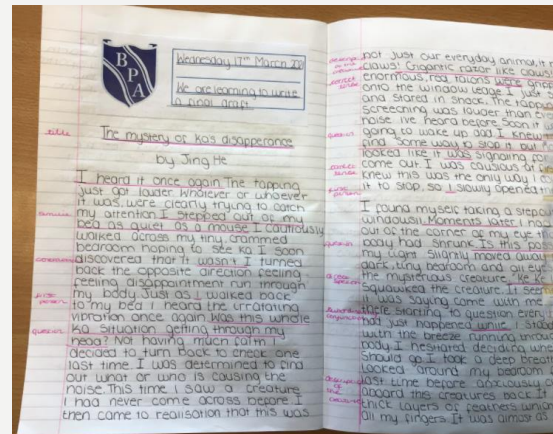 BPA
Wednesday 17th March 20
We are learning to write
a final draft
title
The mystery of Ka's disapperance
by Jing He
I heard it once again. The tapping
just got louder. Whatever or whoever
it was, were clearly trying to catch
my attention. I stepped out of my
bed as quiet as a mouse. I cautiously
walked across my tiny, crammed
bedroom hoping to see Ka. I soon
discovered that it wasn't. I turned
back the opposite direction feeling
feeling disappointment run through
my body. Just as I walked back
to my bed I heard the irratating
vibration once again. Was this whole
Ka situation getting through my
head? Not having much faith I
decided to turn back to check one
last time. I was determined to find
out what or who is causing the
noise. This time I saw a creature
I had never come across before. I
then came to realisation that this was
first person
question
not just our everyday animal, it
claws! Gigantic razor like claws
enormous, rag talons were
onto the window ledge. I just
and stared in shock. The tapping
screeching was louder than
noise I've heard before. Soon it
going to wake up dad. I knew
find some way to stop it but
looked like it was signaling for
come out. I was cautious at
knew this was the only way I
it to stop, so I slowly opened
I found myself taking a step
windowsil. Moments later I
out of the corner of my eye
body had shrunk. Is this
my light slightly moved away
dark, tiny bedroom and
the mysterious creature.
squawked the creature. It
it was saying come with me
there starting to question every
had just happened while I
with the breeze running through
body. I hesitated deciding
should go. I took a deep
looked around my bedroom
last time before anxiously
aboard this creatures back. It
thick layers of feathers which
all my fingers. It was almost as